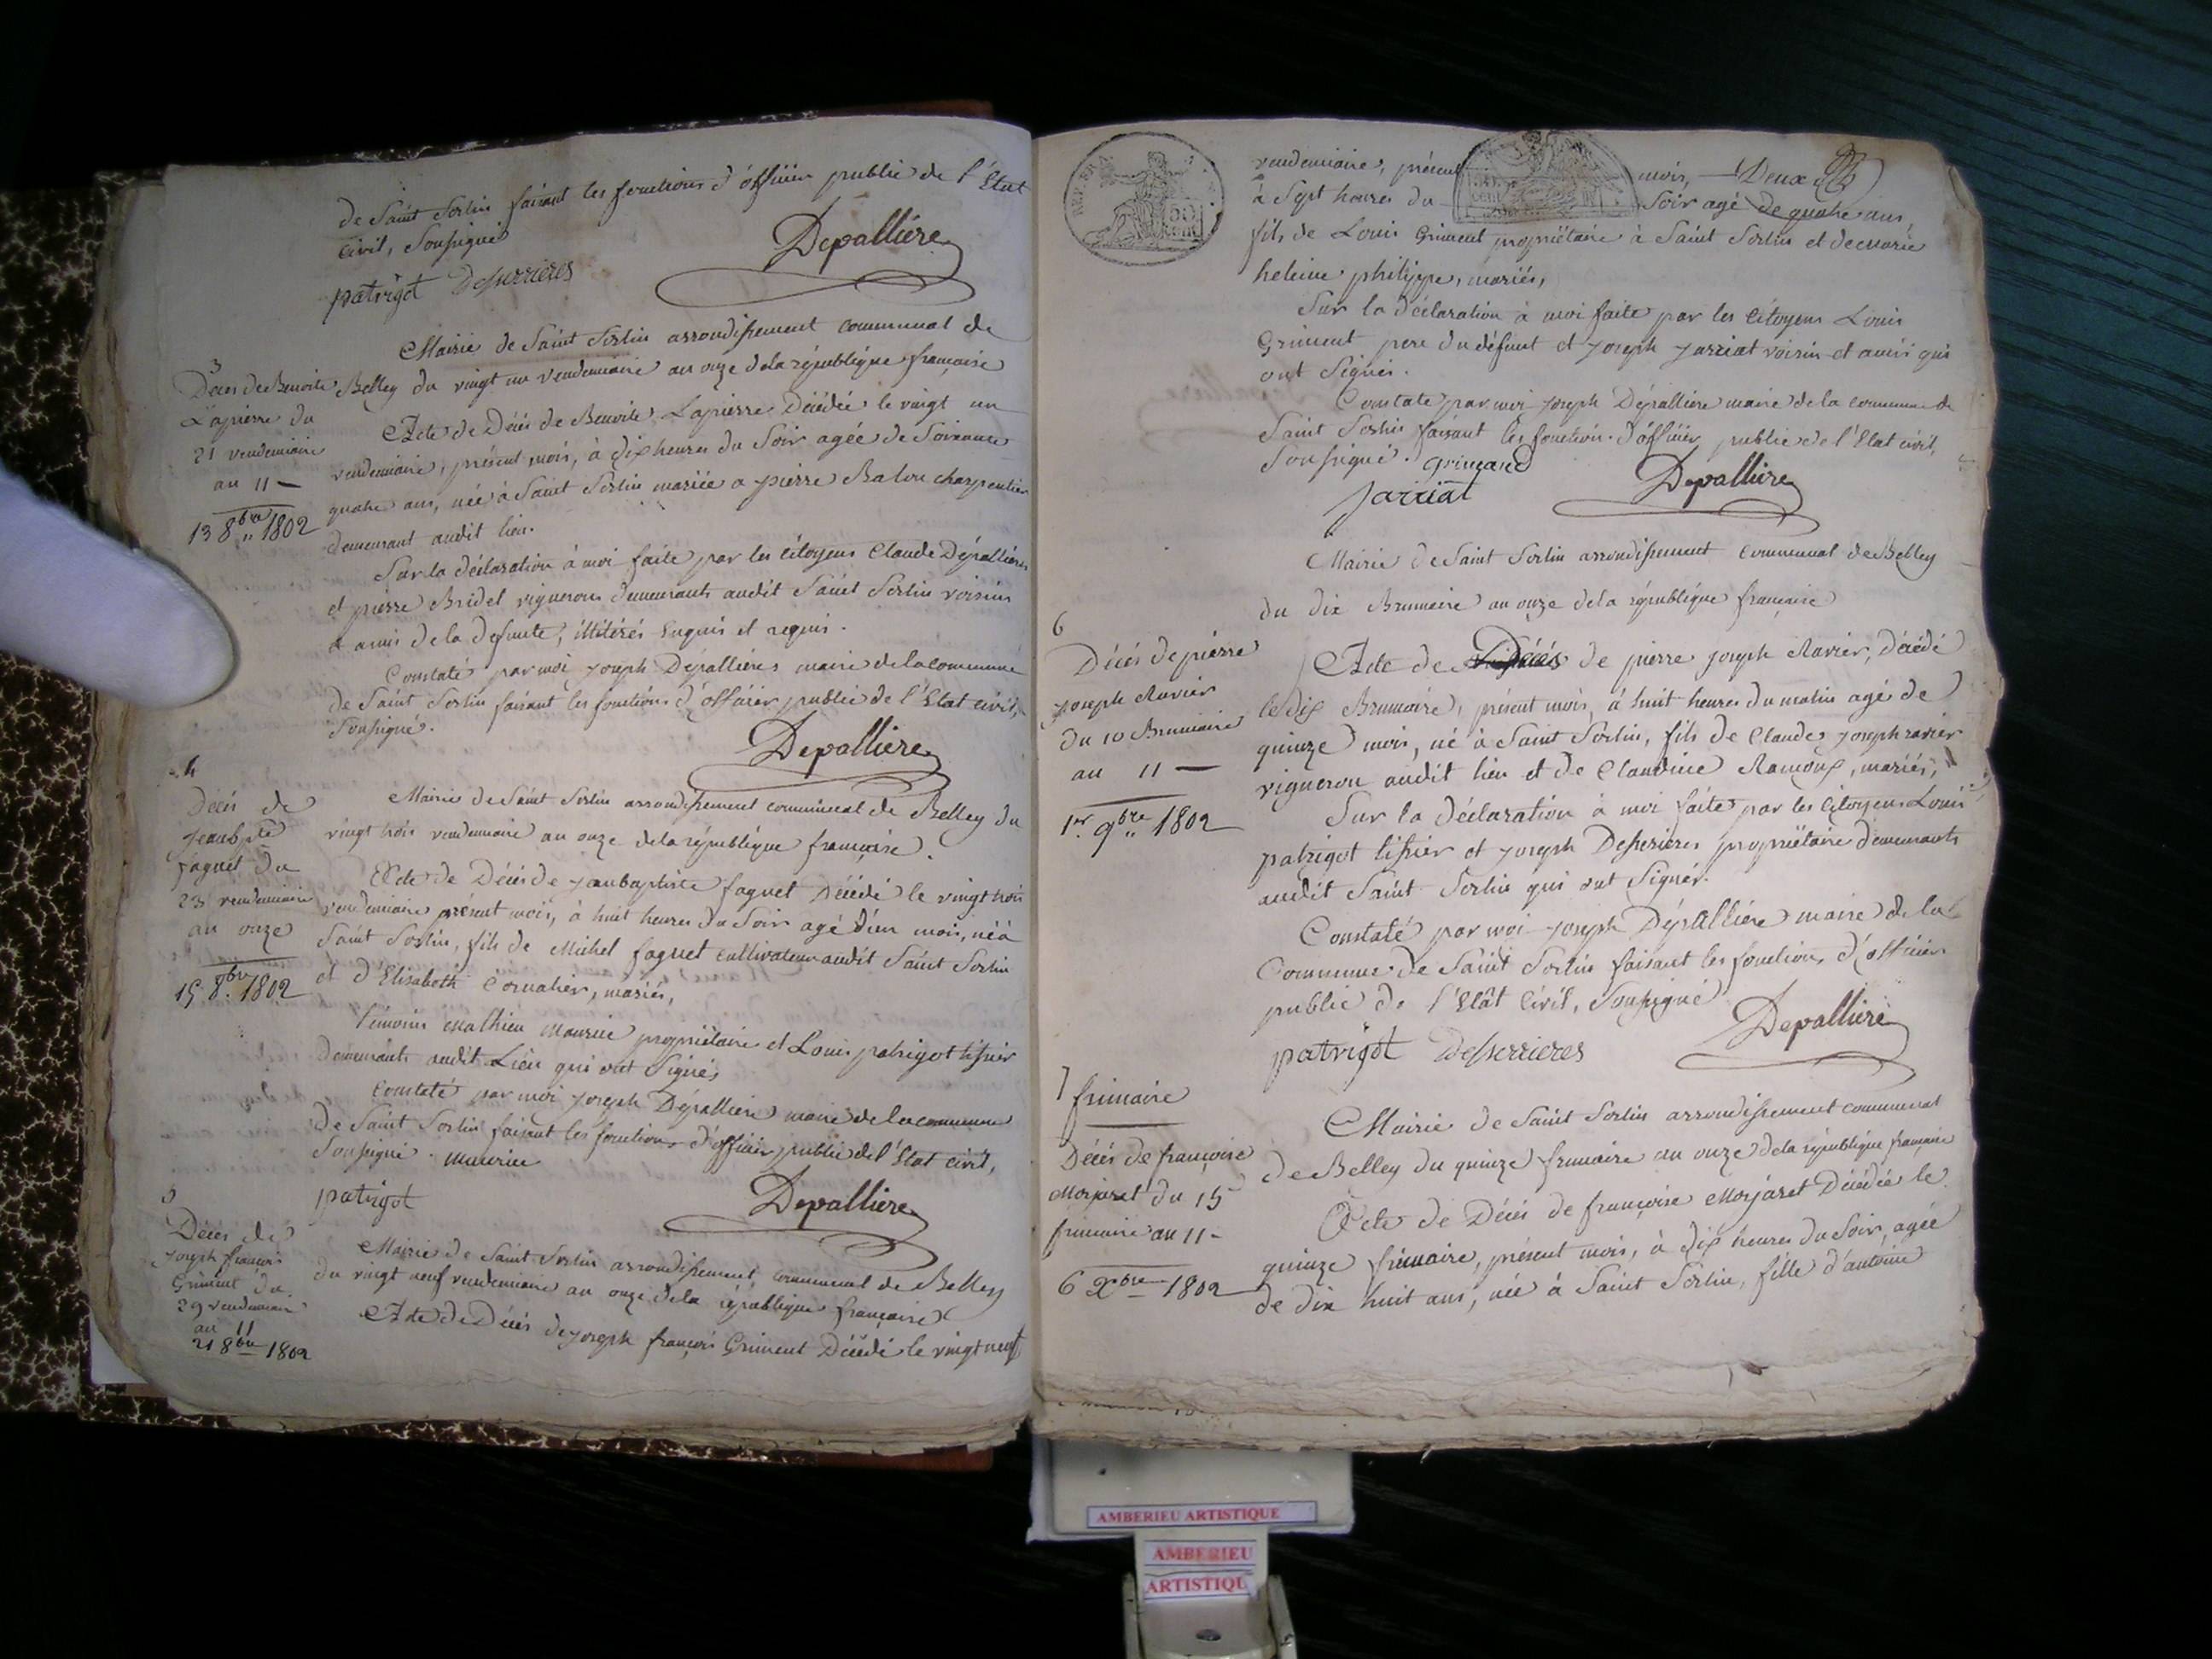 de Saint Sorlin faisant les fonctions d'officier public de l'Etat
Civil, Soussigné
patrigot Desserrieres Depalliere
Mairie de Saint Sorlin arrondissement communal de
3
Deces de Benoite
Lapierre du
21 vendemiaire
an 11 —
13 8bre 1802
Belley du vingt un vendemiaire an onze dela république française
Acte de Décés de Benoite Lapierre Décédée le vingt un
vendemiaire, présent mois, à dix heures du Soir agée de Soixante
quatre ans, née à Saint Sorlin mariée a pierre Balon charpentier
demeurant audit lieu.
Sur la déclaration à moi faite par les Citoyens Claude Dépallieres
et pierre Bridel vignerons demeurants audit Saint Sorlin voisins
& amis de la defunte, illitérés Enquis et requis.
Constaté par moi joseph Dépallieres maire de la commune
de Saint Sorlin faisant les fonctions d'officier public de l'Etat civil,
Soussigné.
Depalliere
4
Décés de
jean bpte
faguet du
23 vendemiaire
an onze
15 8bre 1802
Mairie de Saint Sorlin arrondissement communal de Belley du
vingt trois vendemiaire an onze dela république française.
Acte de Décés de jean baptiste faguet Décédé le vingt trois
vendemiaire présent mois, à huit heures du Soir agé d'un mois, né à
Saint Sorlin, fils de Michel faguet cultivateur audit Saint Sorlin
et d'Elisabeth Cornalier, mariés,
Témoins Mathieu Maurice propriétaire et Louis patrigot tissier
Demeurants audit Lieu qui ont Signés
Constaté par moi joseph Dépalliere maire de la commune
de Saint Sorlin faisant les fonctions d'officier public de l'Etat civil,
Soussigné. Maurice
patrigot Depalliere
5
Décés de
joseph françois
Griment du
29 vendemiaire
an 11
21 8bre 1802
Mairie de Saint Sorlin arrondissement communal de Belley
du vingt neuf vendemiaire an onze dela république française
Acte de Décés de joseph françois Griment Décédé le vingt neuf
REP. FRA
vendemiaire, présent mois, — Deux
à Sept heures du Soir agé de quatre ans,
fils de Louis Griment propriétaire à Saint Sorlin et de marie
heleine philippe, mariés,
Sur la déclaration à moi faite par les Citoyens Louis
Griment pere du défunt et joseph jarriat voisin et amis qui
ont Signés.
Constaté par moi joseph Dépalliere maire de la commune de
Saint Sorlin faisant les fonction d'officier public de l'Etat civil,
Soussigné.
jarriat Depalliere
Mairie de Saint Sorlin arrondissement communal de Belley
du dix Brumaire an onze dela république française
6
Décés de pierre
joseph Ravier
du 10 Brumaire
an 11 —
1er 9bre 1802
Acte de Décés de pierre joseph Ravier, décédé
le dix Brumaire, présent mois, à huit heures du matin agé de
quinze mois, né à Saint Sorlin, fils de Claude joseph ravier
vigneron audit lieu et de Claudine Ramoux, mariés,
Sur la déclaration à moi faite par les Citoyens Louis
patrigot tissier et joseph Desserieres propriétaire demeurants
audit Saint Sorlin qui ont Signés.
Constaté par moi joseph Dépalliére maire de la
Commune de Saint Sorlin faisant les fonctions d'officier
public de l'Etât Civil, Soussigné
patrigot Desserrieres Depalliere
7 frimaire
Décés de françoise
Morjaret du 15
frimaire an 11 -
6 Xbre 1802
Mairie de Saint Sorlin arrondissement communal
de Belley du quinze frimaire an onze dela république française
Acte de Décés de françoise Morjaret Décédée le
quinze frimaire, présent mois, à dix heures du Soir, agée
de dix huit ans, née à Saint Sorlin, fille d'antoine
AMBERIEU ARTISTIQUE
AMBERIEU
ARTISTIQU